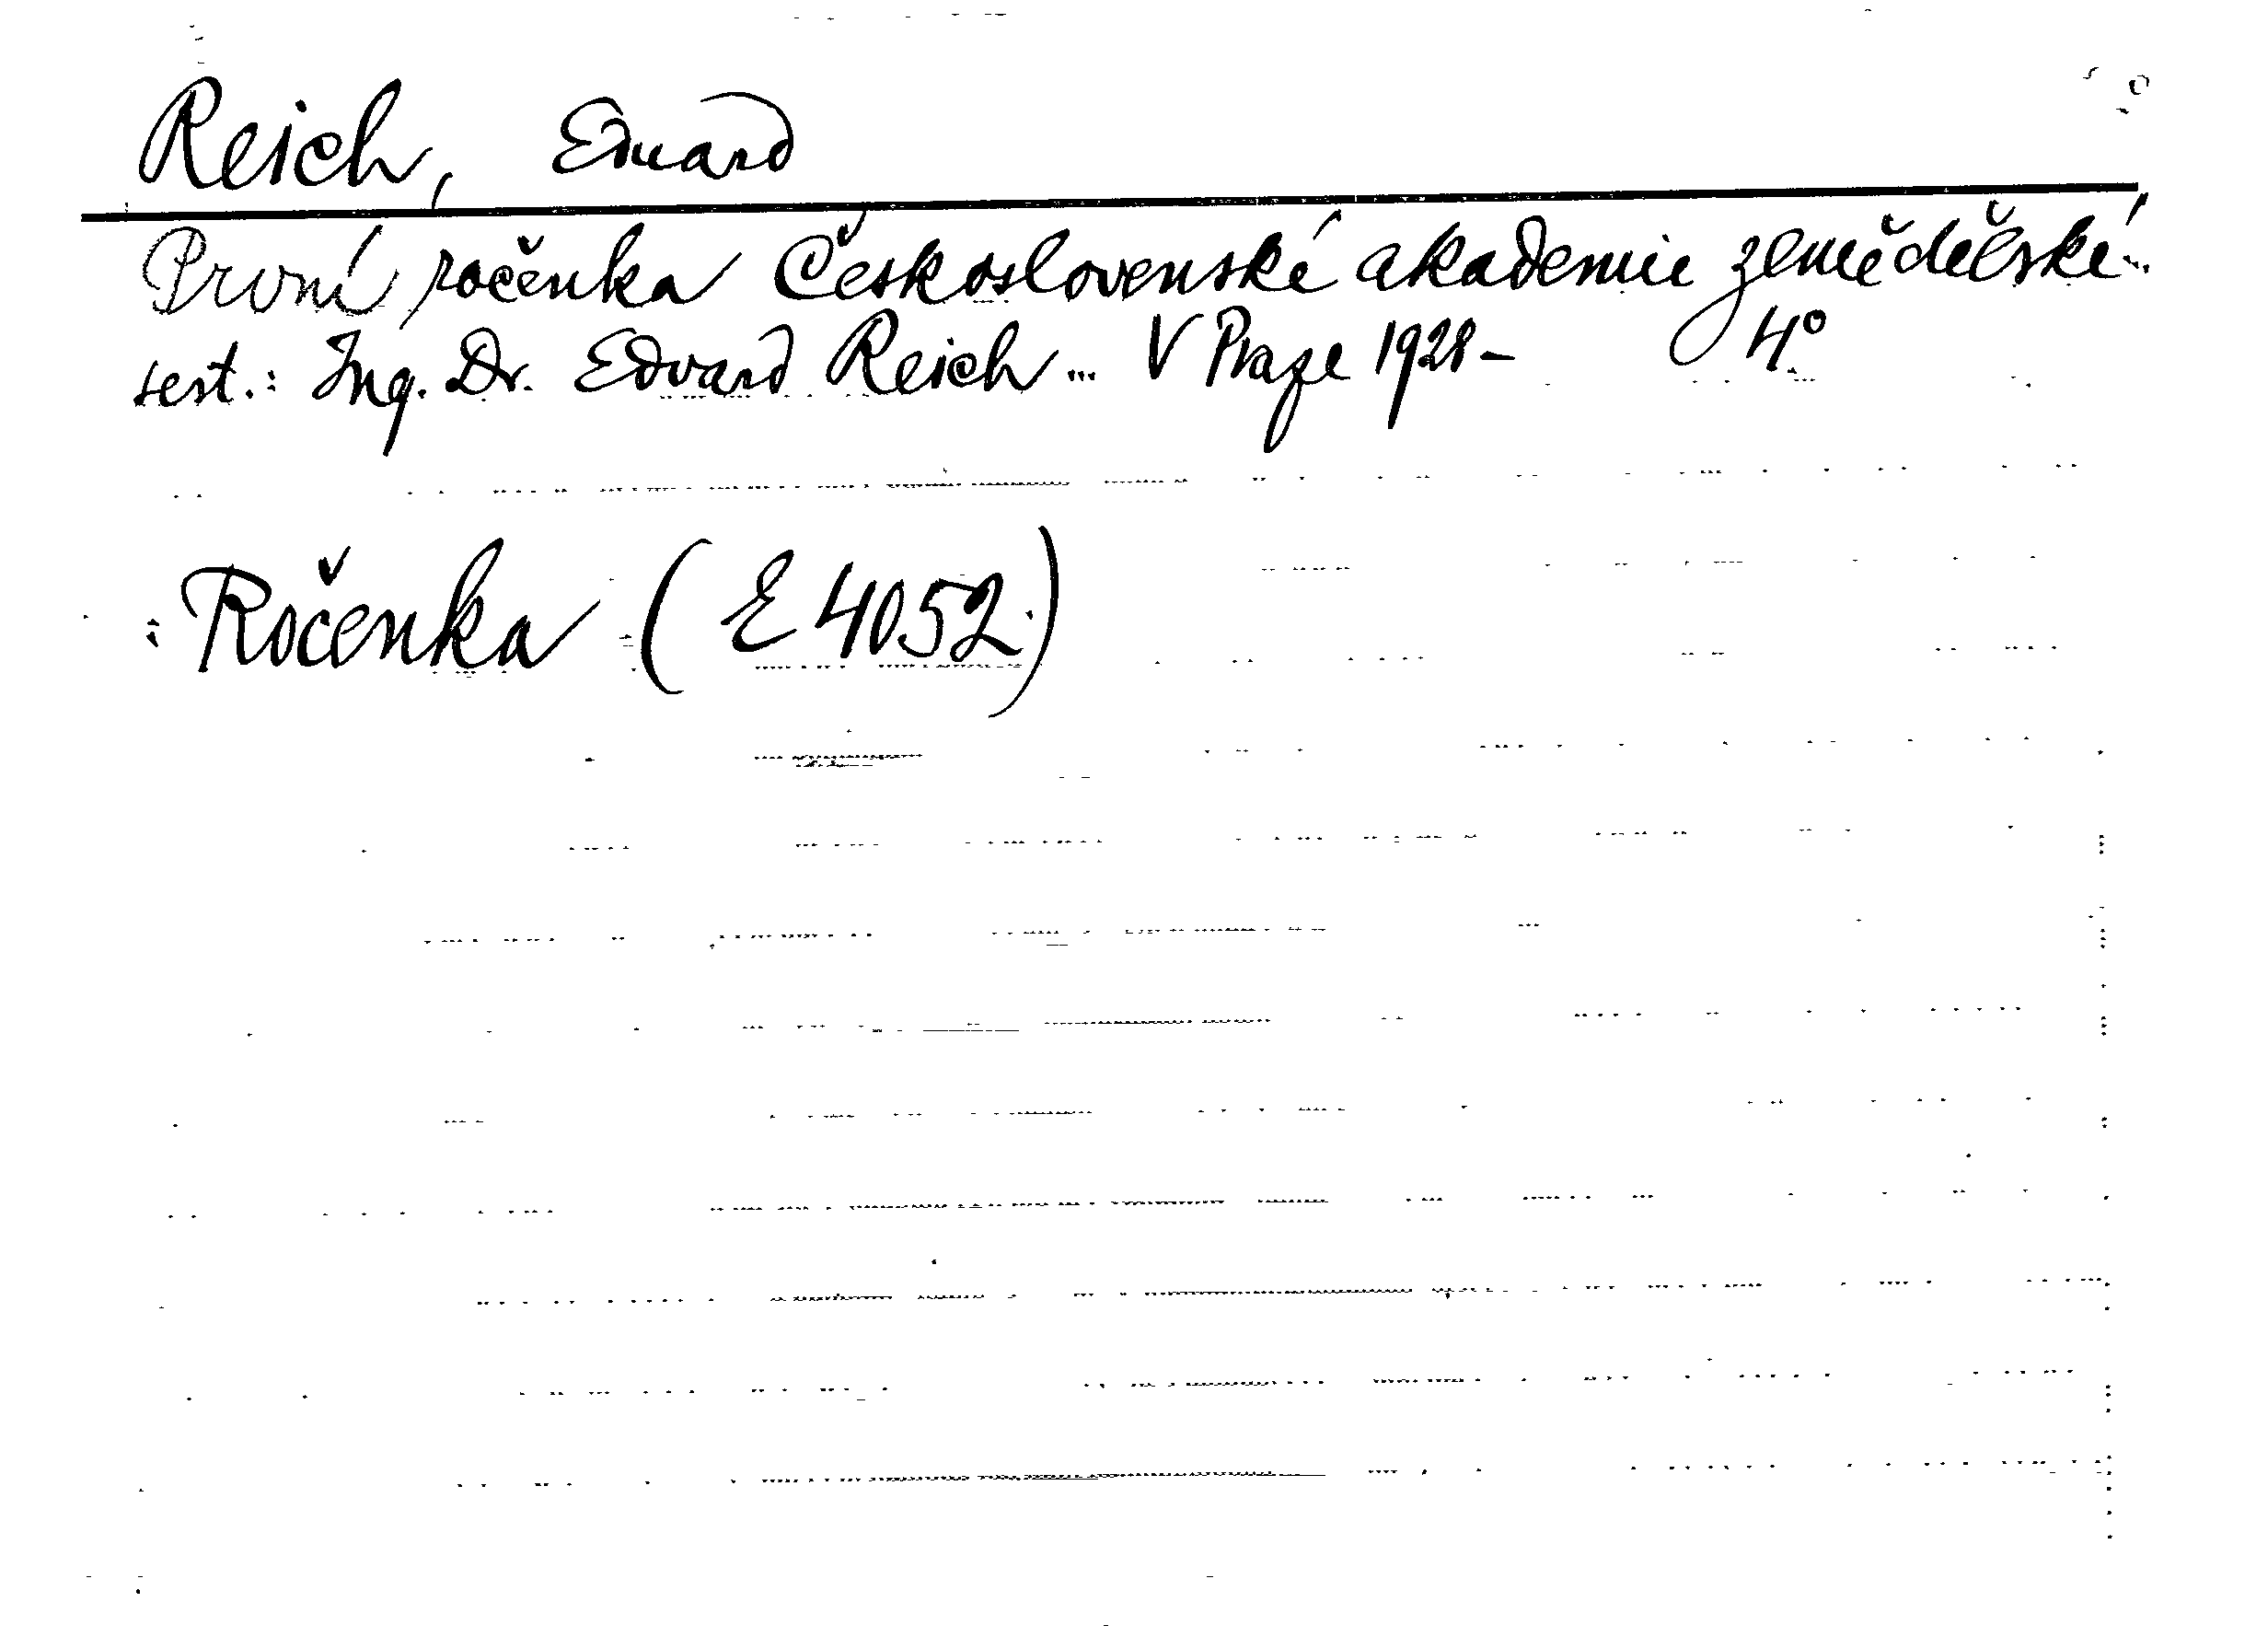 Reich, Eduard
První ročenka Československé akademie zemědělské...
sest.: Ing. Dr. Edvard Reich... V Praze 1928- 4°
: Ročenka (E 4052.)